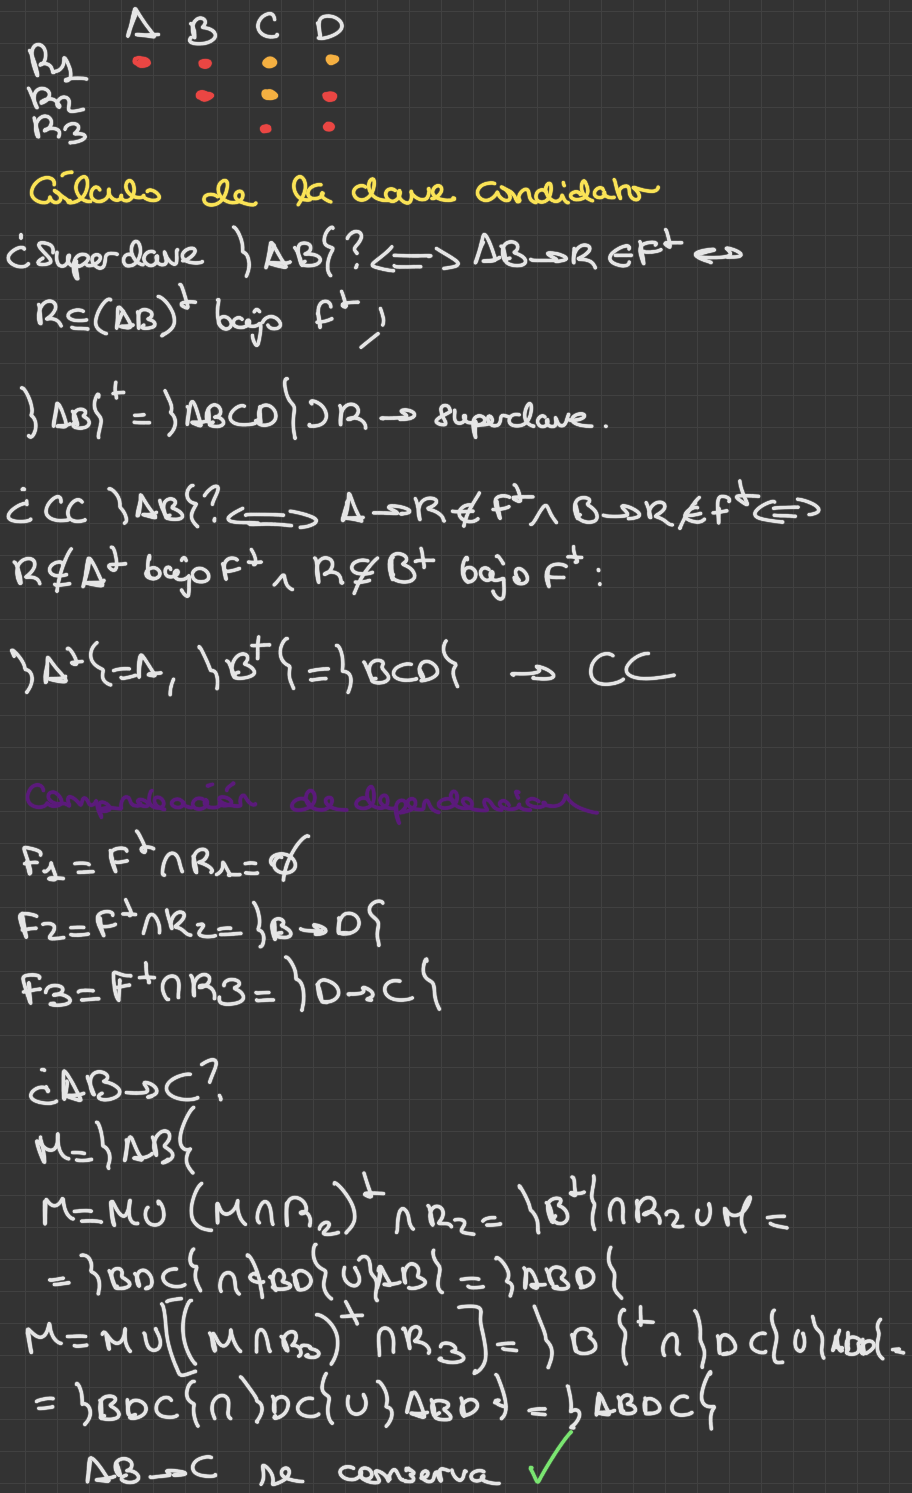 A B C D
R1
R2
R3
Cálculo de la clave candidata
¿Superclave }AB{? <=> AB→R ∈ F⁺ <->
R⊆(AB)⁺ bajo F⁺,
}AB{⁺ = }ABCD{ ⊃ R → superclave.
¿CC }AB{? <=> A→R ∉ F⁺ ∧ B→R ∉ F⁺ <=>
R⊄A⁺ bajo F⁺ ∧ R⊄B⁺ bajo F⁺:
}A⁺{=A, }B⁺{=}BCD{ → CC
Comprobación de dependencias
F1 = F⁺∩R1 = ∅
F2 = F⁺∩R2 = }B→D{
F3 = F⁺∩R3 = }D→C{
¿AB→C?
M = }AB{
M = M∪(M∩R2)⁺ ∩ R2 = }B⁺{∩R2∪M =
= }BDC{∩}BD{∪}AB{ = }ABD{
M = M∪[(M∩R3)⁺∩R3] = }D{⁺∩}DC{∪}ABD{ =
= }BDC{∩}DC{∪}ABD{ = }ABDC{
AB→C se conserva ✓